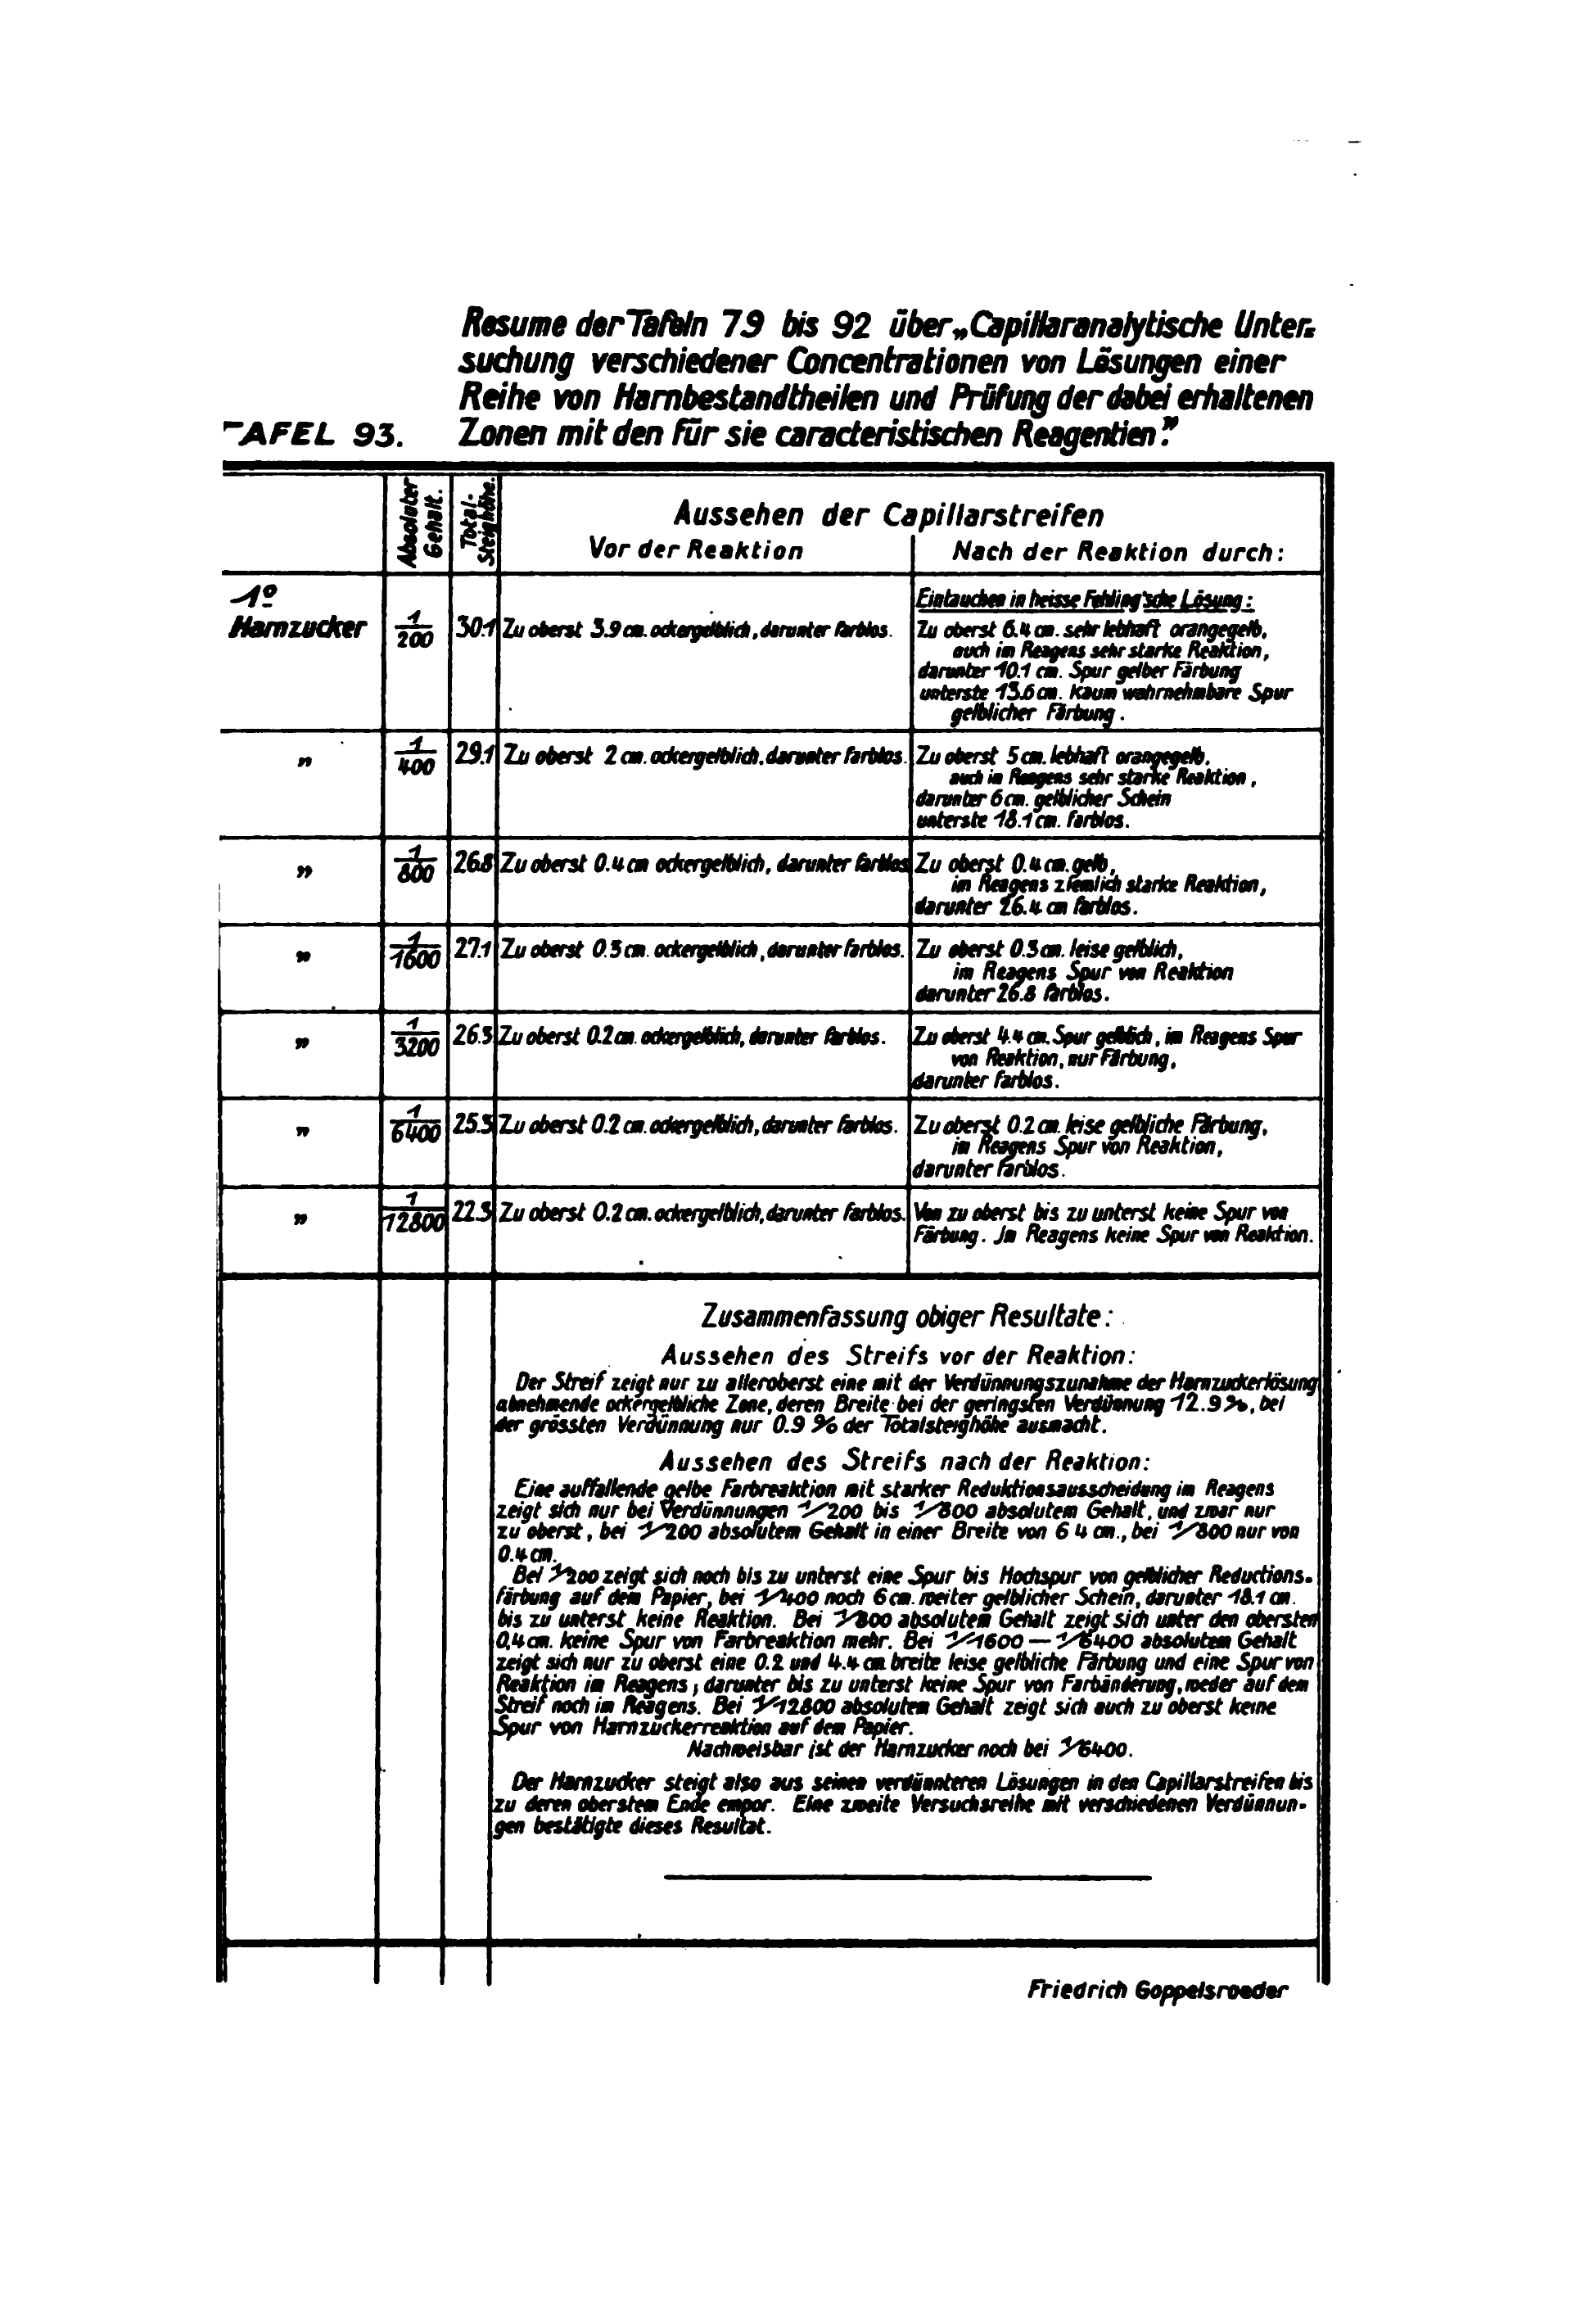 Resume der Tafeln 79 bis 92 über „Capillaranalytische Unter=
suchung verschiedener Concentrationen von Lösungen einer
Reihe von Harnbestandtheilen und Prüfung der dabei erhaltenen
TAFEL 93. Zonen mit den für sie caracteristischen Reagentien."
Absoluter Gehalt.
Total-Steighöhe.
Aussehen der Capillarstreifen
Vor der Reaktion
Nach der Reaktion durch:
1º
Harnzucker
1/200
30.1
Zu oberst 3.9 cm. ockergelblich, darunter farblos.
Eintauchen in heisse Fehling'sche Lösung:
Zu oberst 6.4 cm. sehr lebhaft orangegelb,
auch im Reagens sehr starke Reaktion,
darunter 10.1 cm. Spur gelber Färbung
unterste 13.6 cm. kaum wahrnehmbare Spur
gelblicher Färbung.
„ 1/400 29.1 Zu oberst 2 cm. ockergelblich, darunter farblos.
Zu oberst 5 cm. lebhaft orangegelb,
auch im Reagens sehr starke Reaktion,
darunter 6 cm. gelblicher Schein
unterste 18.1 cm. farblos.
„ 1/800 26.8 Zu oberst 0.4 cm ockergelblich, darunter farblos
Zu oberst 0.4 cm. gelb,
im Reagens ziemlich starke Reaktion,
darunter 26.4 cm farblos.
„ 1/1600 27.1 Zu oberst 0.3 cm. ockergelblich, darunter farblos.
Zu oberst 0.3 cm. leise gelblich,
im Reagens Spur von Reaktion
darunter 26.8 farblos.
„ 1/3200 26.3 Zu oberst 0.2 cm. ockergelblich, darunter farblos.
Zu oberst 4.4 cm. Spur gelblich, im Reagens Spur
von Reaktion, nur Färbung,
darunter farblos.
„ 1/6400 25.3 Zu oberst 0.2 cm. ockergelblich, darunter farblos.
Zu oberst 0.2 cm. leise gelbliche Färbung,
im Reagens Spur von Reaktion,
darunter farblos.
„ 1/12800 22.3 Zu oberst 0.2 cm. ockergelblich, darunter farblos.
Von zu oberst bis zu unterst keine Spur von
Färbung. Jm Reagens keine Spur von Reaktion.
Zusammenfassung obiger Resultate:
Aussehen des Streifs vor der Reaktion:
Der Streif zeigt nur zu alleroberst eine mit der Verdünnungszunahme der Harnzuckerlösung
abnehmende ockergelbliche Zone, deren Breite bei der geringsten Verdünnung 12.9 %, bei
der grössten Verdünnung nur 0.9 % der Totalsteighöhe ausmacht.
Aussehen des Streifs nach der Reaktion:
Eine auffallende gelbe Farbreaktion mit starker Reduktionsausscheidung im Reagens
zeigt sich nur bei Verdünnungen 1/200 bis 1/800 absolutem Gehalt, und zwar nur
zu oberst, bei 1/200 absolutem Gehalt in einer Breite von 6 4 cm., bei 1/800 nur von
0.4 cm.
Bei 1/200 zeigt sich noch bis zu unterst eine Spur bis Hochspur von gelblicher Reductions-
färbung auf dem Papier, bei 1/400 noch 6 cm. weiter gelblicher Schein, darunter 18.1 cm.
bis zu unterst keine Reaktion. Bei 1/800 absolutem Gehalt zeigt sich unter den obersten
0,4 cm. keine Spur von Farbreaktion mehr. Bei 1/1600 — 1/6400 absolutem Gehalt
zeigt sich nur zu oberst eine 0.2 und 4.4 cm breite leise gelbliche Färbung und eine Spur von
Reaktion im Reagens; darunter bis zu unterst keine Spur von Farbänderung, weder auf dem
Streif noch im Reagens. Bei 1/12800 absolutem Gehalt zeigt sich auch zu oberst keine
Spur von Harnzuckerreaktion auf dem Papier.
Nachweisbar ist der Harnzucker noch bei 1/6400.
Der Harnzucker steigt also aus seinen verdünnteren Lösungen in den Capillarstreifen bis
zu deren oberstem Ende empor. Eine zweite Versuchsreihe mit verschiedenen Verdünnun-
gen bestätigte dieses Resultat.
Friedrich Goppelsroeder